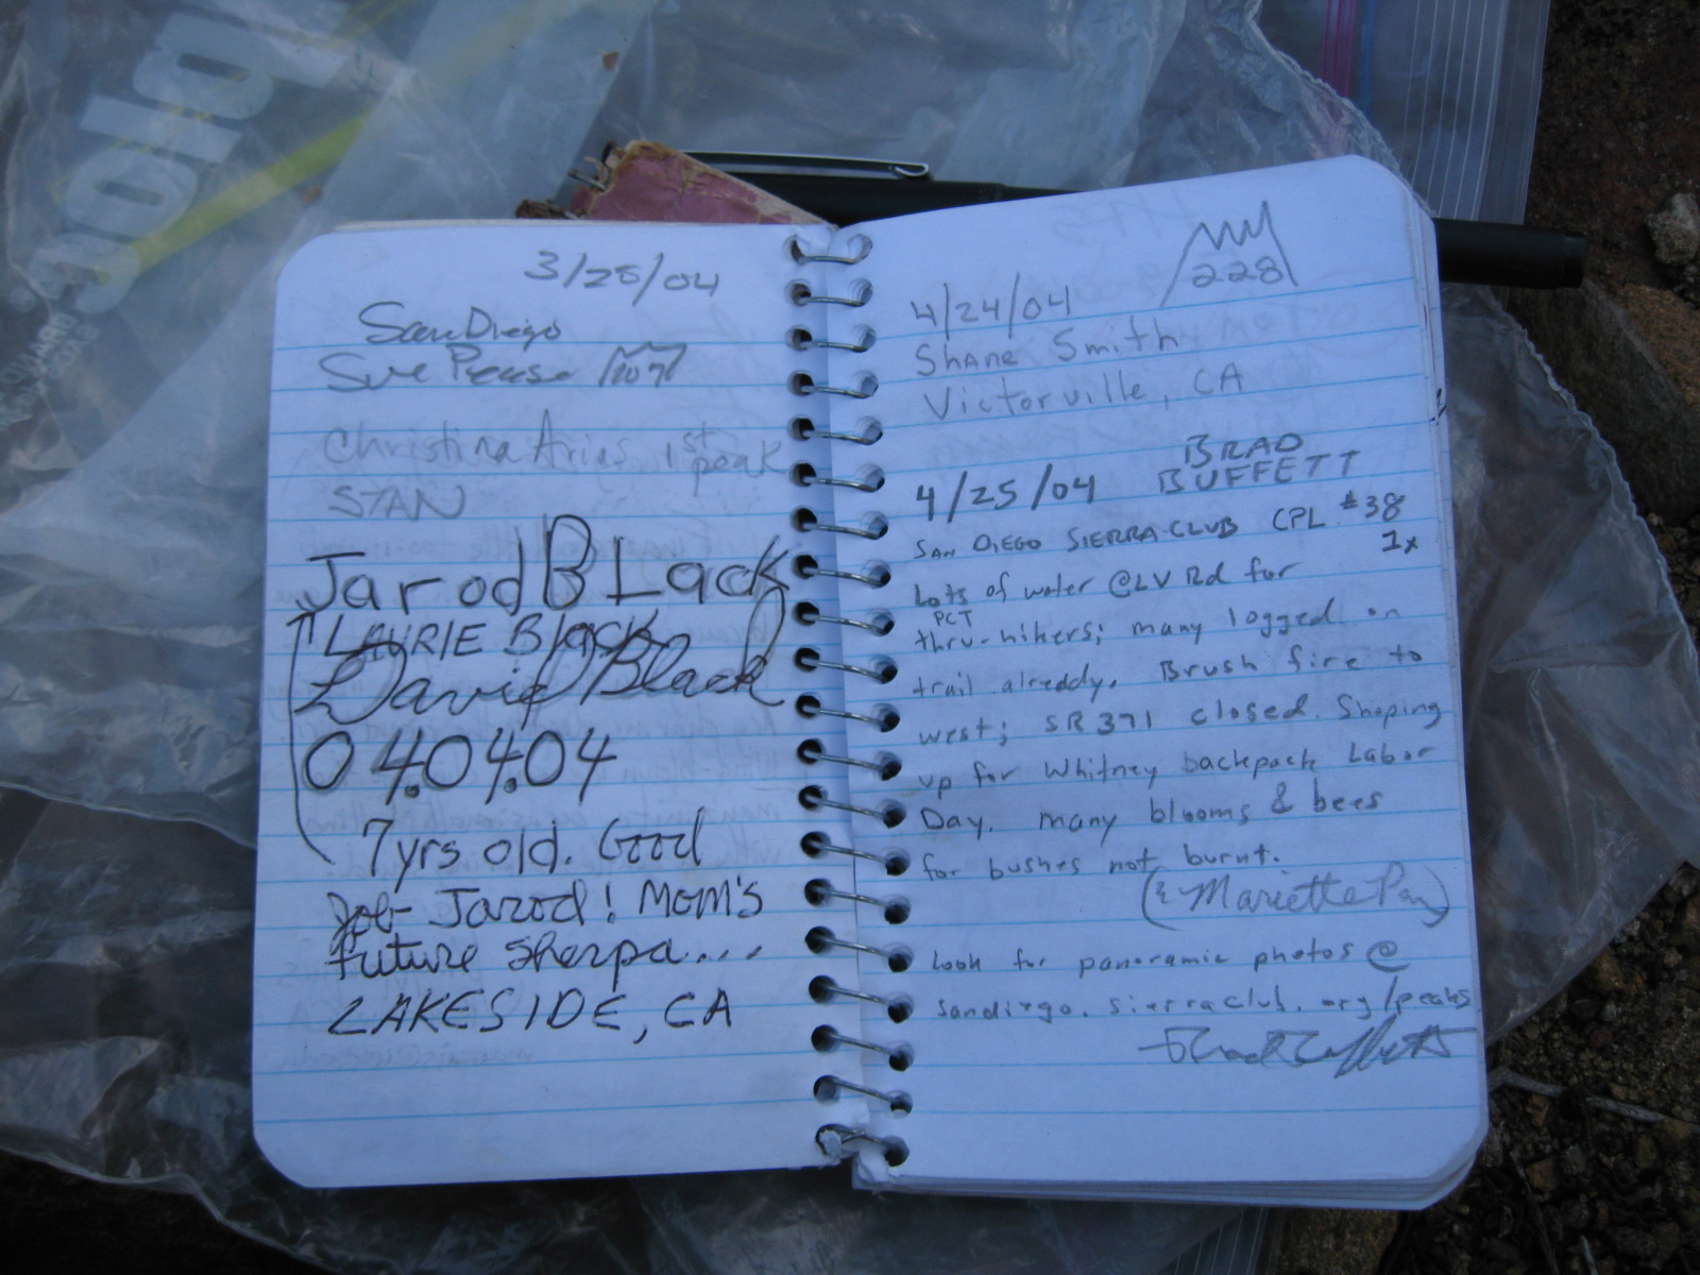 3/28/04
San Diego
Sue
107
Christina Aries 1st peak
STAN
Jarod BLack
LAURIE Black
David Black
04.04.04
7yrs old. Good
Job Jarod! Mom's
future sherpa....
LAKESIDE, CA
228
4/24/04
Shane Smith
Victorville, CA
4/25/04 BRAD BUFFETT
SAN DIEGO SIERRA CLUB CPL #38
1x
Lots of water @LV Rd for
PCT
thru-hikers; many logged on
trail alreddy. Brush fire to
west; SR 371 closed. Shaping
up for Whitney backpack Labor
Day. many blooms & bees
for bushes not burnt.
(& Mariette
Look for panoramic photos @
sandiego.sierraclub.org/peaks